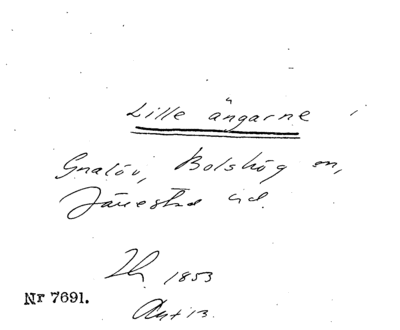 Lille ängarne
Gnalöv, Bolshög sn,
Järrestad hd.
1853
Nr 7691.